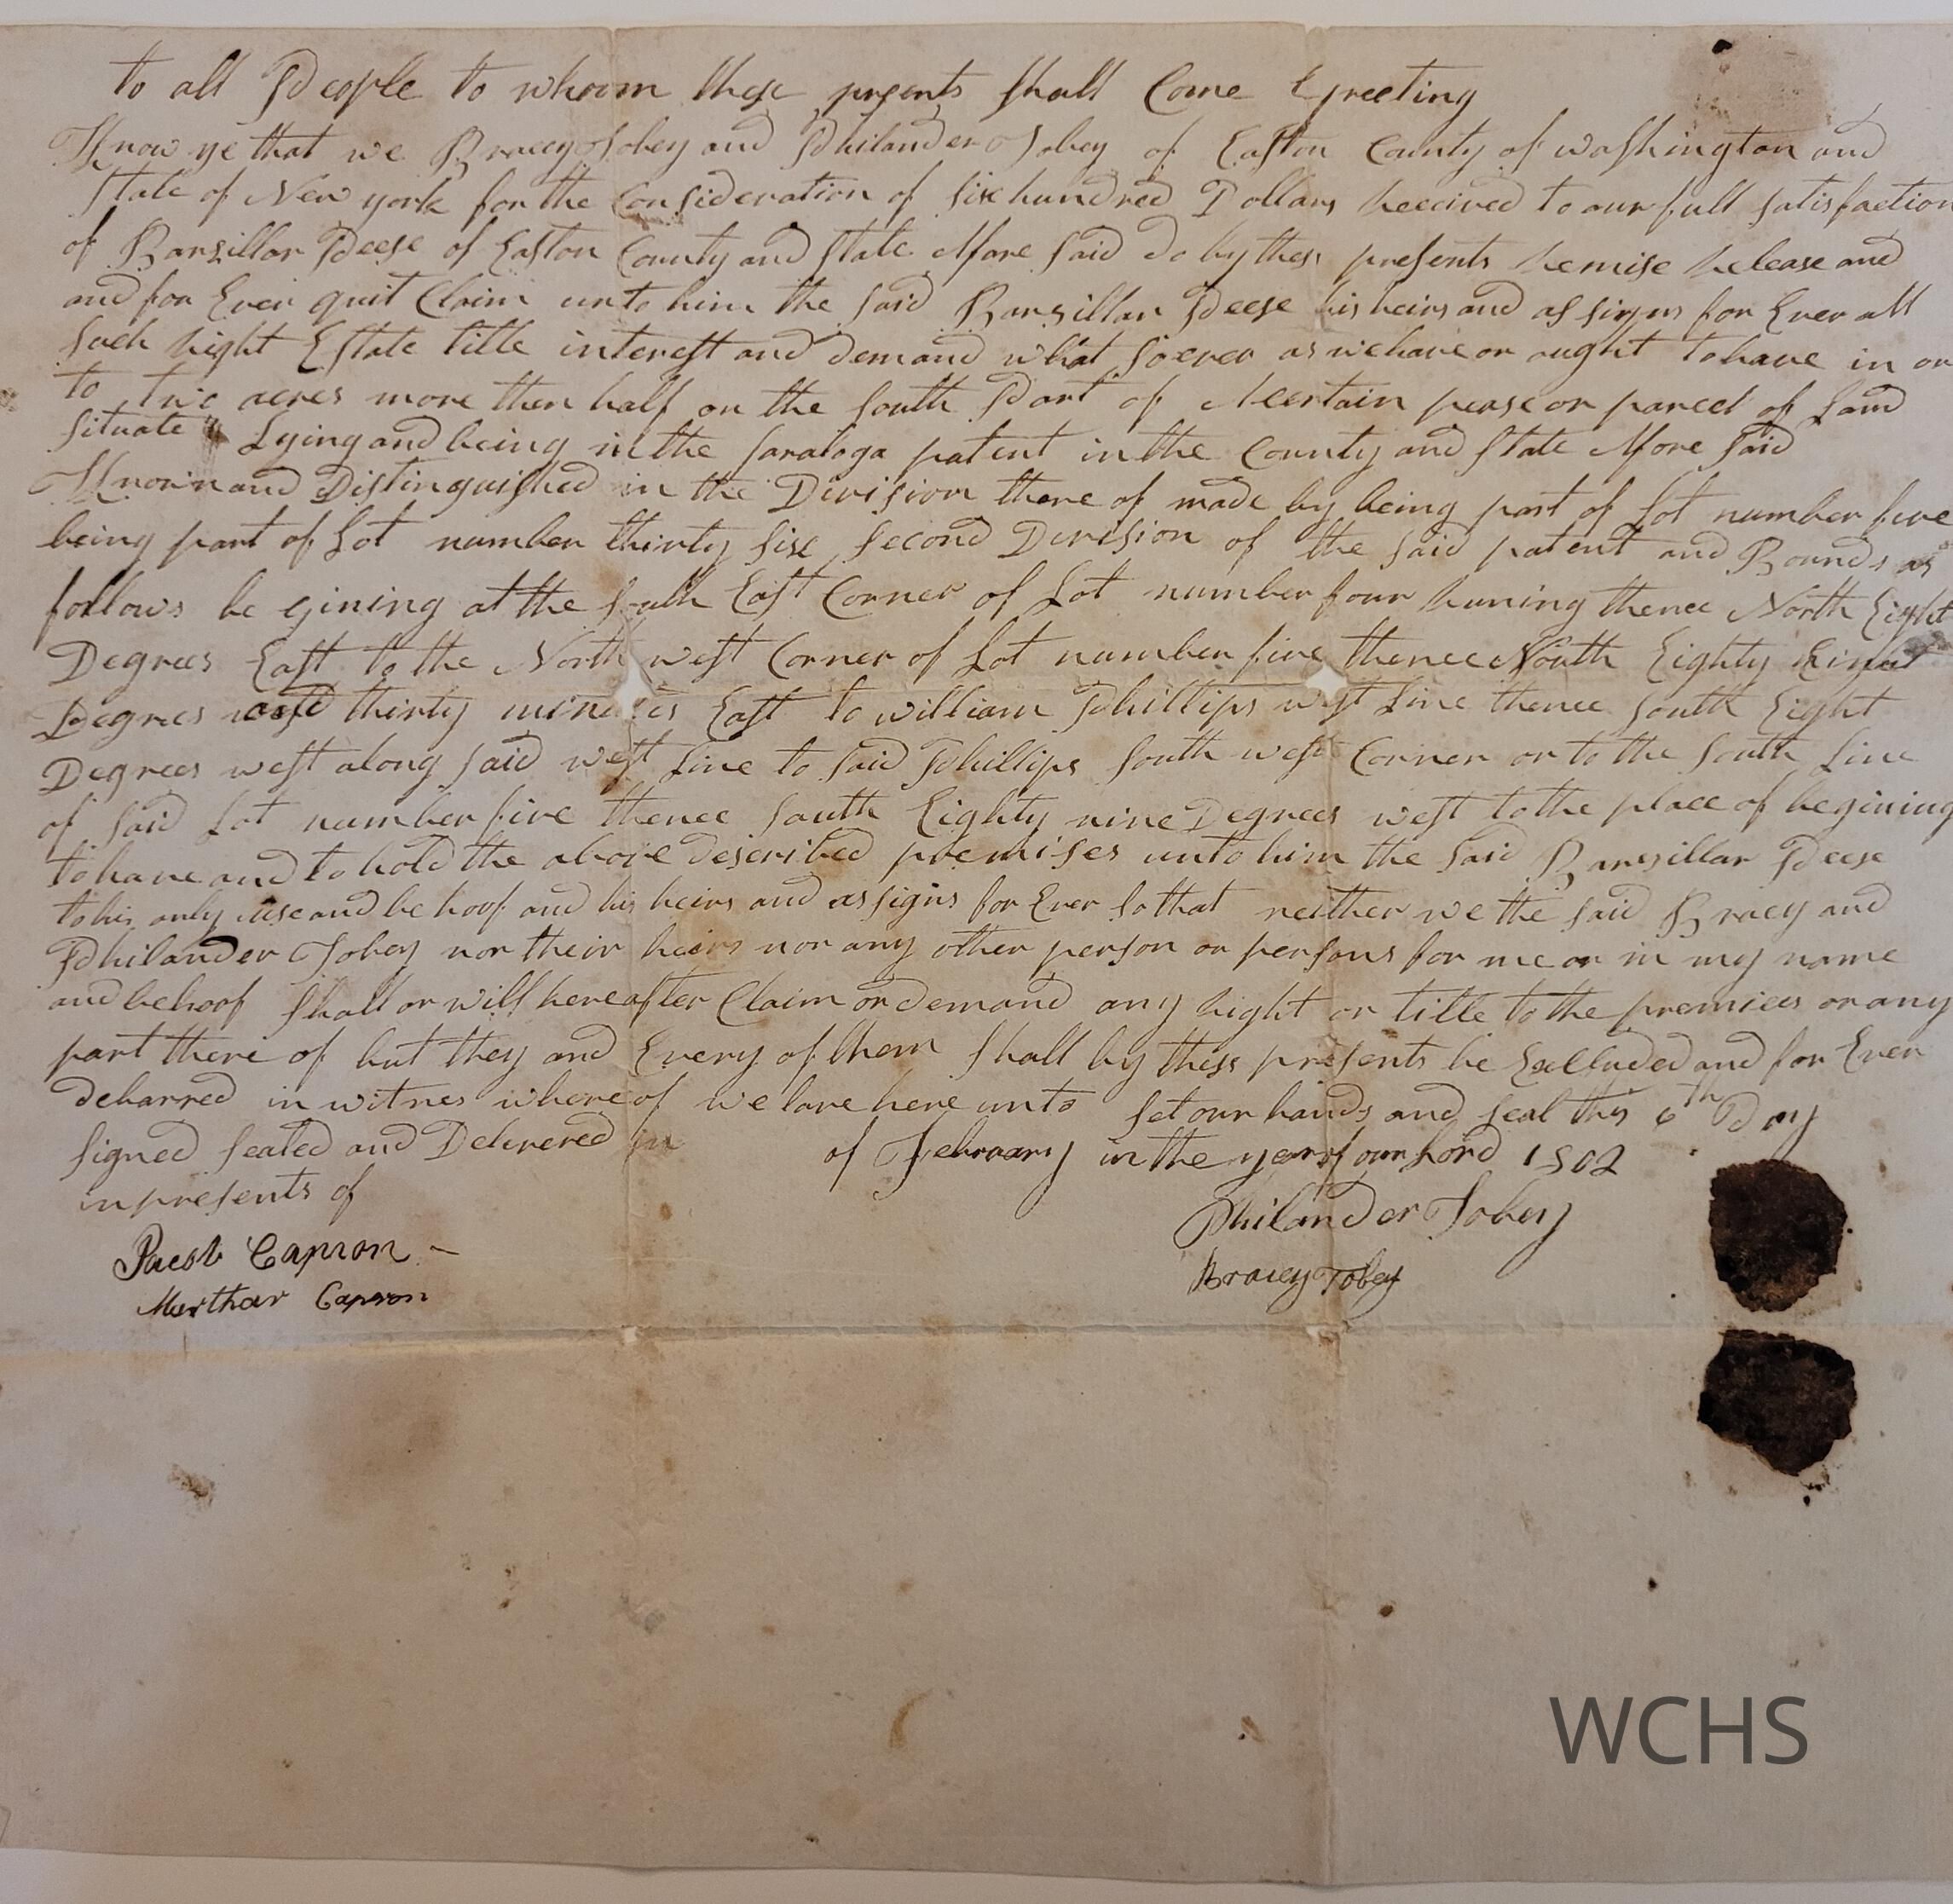 to all People to whoom these presents shall Come Greeting
Know ye that we Bracey Tobey and Philander Tobey of Easton County of washington and
State of New york for the Consideration of six hundred Dollars Received to our full satisfaction
of Barsillar Deese of Easton County and State Afore said do by thess presents Remise Release and
and for Ever quit Claim unto him the said Barsillar Deese his heirs and assigns for Ever all
such Right Estate title interest and demand what soever as we have or ought to have in or
to two acres more then half on the South Part of A certain pease or parcel of Land
situate Lying and being in the Saratoga patent in the County and State Afore said
Known and Distinguished in the Division there of made by being part of Lot number five
being part of Lot number thirty six second Division of the said patent and Bounds as
follows be gining at the South East Corner of Lot number four Runing thence North Eight
Degrees East to the North west Corner of Lot number five thence North Eighty
Degrees and thirty minutes East to william Phillips west Line thence South Eight
Degrees west along said west Line to said Phillips South west Corner or to the South Line
of said Lot number five thence South Eighty nine Degrees west to the place of begining
to have and to hold the above Described premises unto him the said Barsillar Deese
to his only use and be hoof and his heirs and assigns for Ever so that neither we the said Bracy and
Philander Tobey nor their heirs nor any other person or persons for me or in my name
and behoof shall or will hereafter Claim or demand any Right or title to the premices or any
part there of but they and Every of them shall by thess presents be Excluded and for Ever
debarred in witnes where of we have here unto set our hands and seal this 6th Day
signed sealed and Delivered in of February in the year of our Lord 1802
in presents of
Philander Tobey
Jacob Capron
Bracey Tobey
Marthar Capron
WCHS